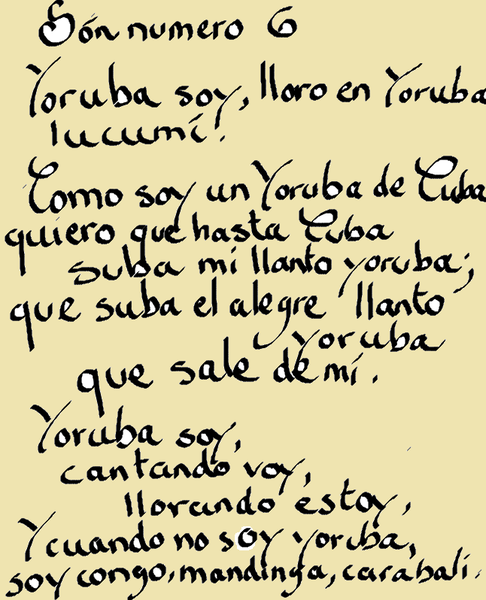 Són numero 6
Yoruba soy, lloro en Yoruba
lucumí.
Como soy un Yoruba de Cuba
quiero que hasta Cuba
suba mi llanto yoruba;
que suba el alegre llanto
yoruba
que sale de mí.
Yoruba soy,
cantando voy,
llorando estoy,
Y cuando no soy yoruba,
soy congo, mandinga, carabalí.